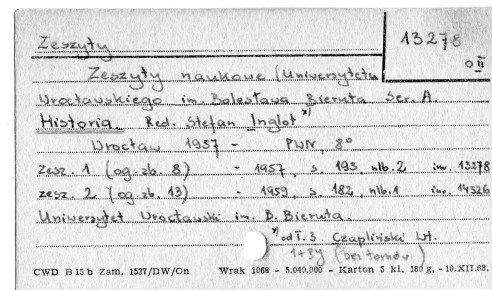 Zeszyty
13278
O II
Zeszyty naukowe (Uniwersytetu
Wrocławskiego im. Bolesława Bieruta Ser. A.
Historia. Red. Stefan Inglot x)
Wrocław 1957 - PWN, 8°
zesz. 1 (og. zb. 8) - 1957, s. 193, nlb. 2 inw. 13278
zesz. 2 (og. zb. 13) - 1959, s. 182, nlb. 1 inw. 14326
Uniwersytet Wrocławski im. B. Bieruta.
x) od T. 3. Czapliński Wł.
1+3y (bez tomów)
CWD B 15 b Zam. 1537/DW/On Wrak 1068 - 5.040.000 - Karton 5 kl. 180 g. - 10.XII.68.